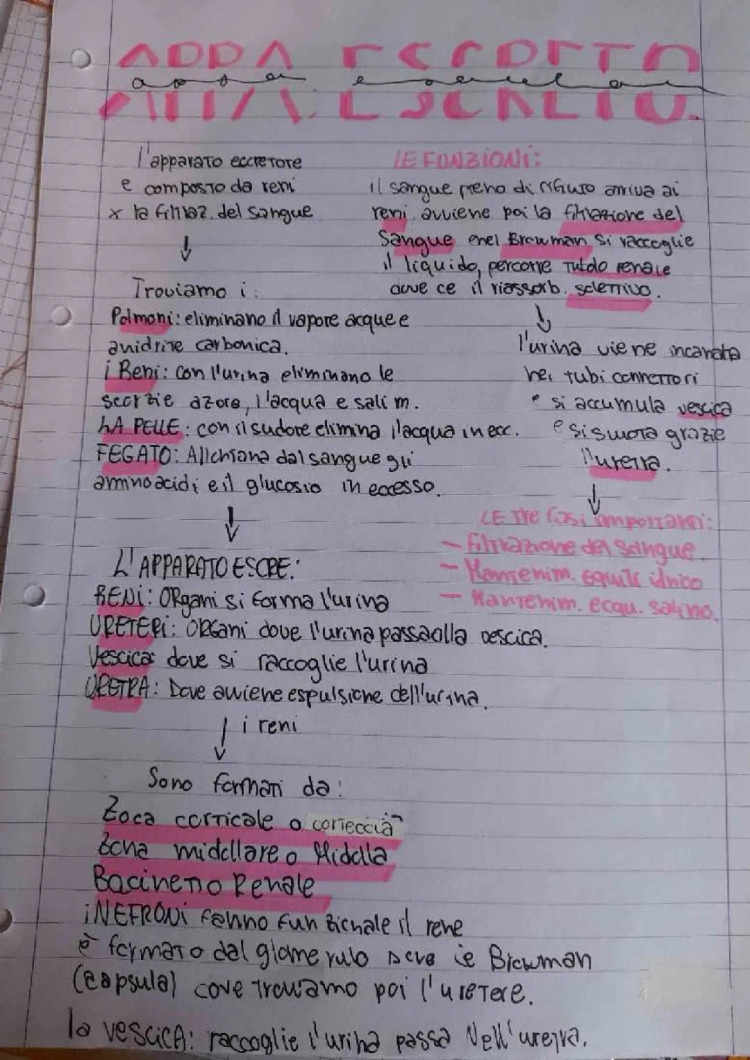 APPA. ESCRETO.
l'apparato eccretore
e composto da reni
x la filtraz. del sangue
Troviamo i:
Polmoni: eliminano il vapore acque e
anidrite carbonica.
i Reni: con l'urina eliminano le
scorzie azore, l'acqua e sali m.
LA PELLE: con il sudore elimina l'acqua in ecc.
FEGATO: Allontana dal sangue gli
aminoacidi e il glucosio in eccesso.
L'APPARATO ESCRE:
RENI: ORgani si forma l'urina
URETERI: ORGani dove l'urina passa alla vescica.
Vescica: dove si raccoglie l'urina
URETRA: Dove avviene espulsione dell'urina.
i reni
Sono formati da:
Zoca corticale o corteccia
Zona midollare o Midolla
Bacineto Renale
i NEFRONI fanno funzionale il rene
è formato dal glomerulo Browman
(capsula) dove Troviamo poi l'uretere.
la VESCICA: raccoglie l'urina passa Nell'uretra.
LE FUNZIONI:
il sangue pieno di rifiuto arriva ai
reni avviene poi la filtrazione del
Sangue e nel Browman si raccoglie
il liquido, percorre Tubolo renale
ove ce il riassorb. seletivo.
l'urina viene incanata
nei tubi connettori
e si accumula vescica
e si svuota grazie
l'uretra.
LE Tre fasi importanti:
- Filtrazione del Sangue
- Mantenim. equili idrico
- Mantenim. ecqu. salino.